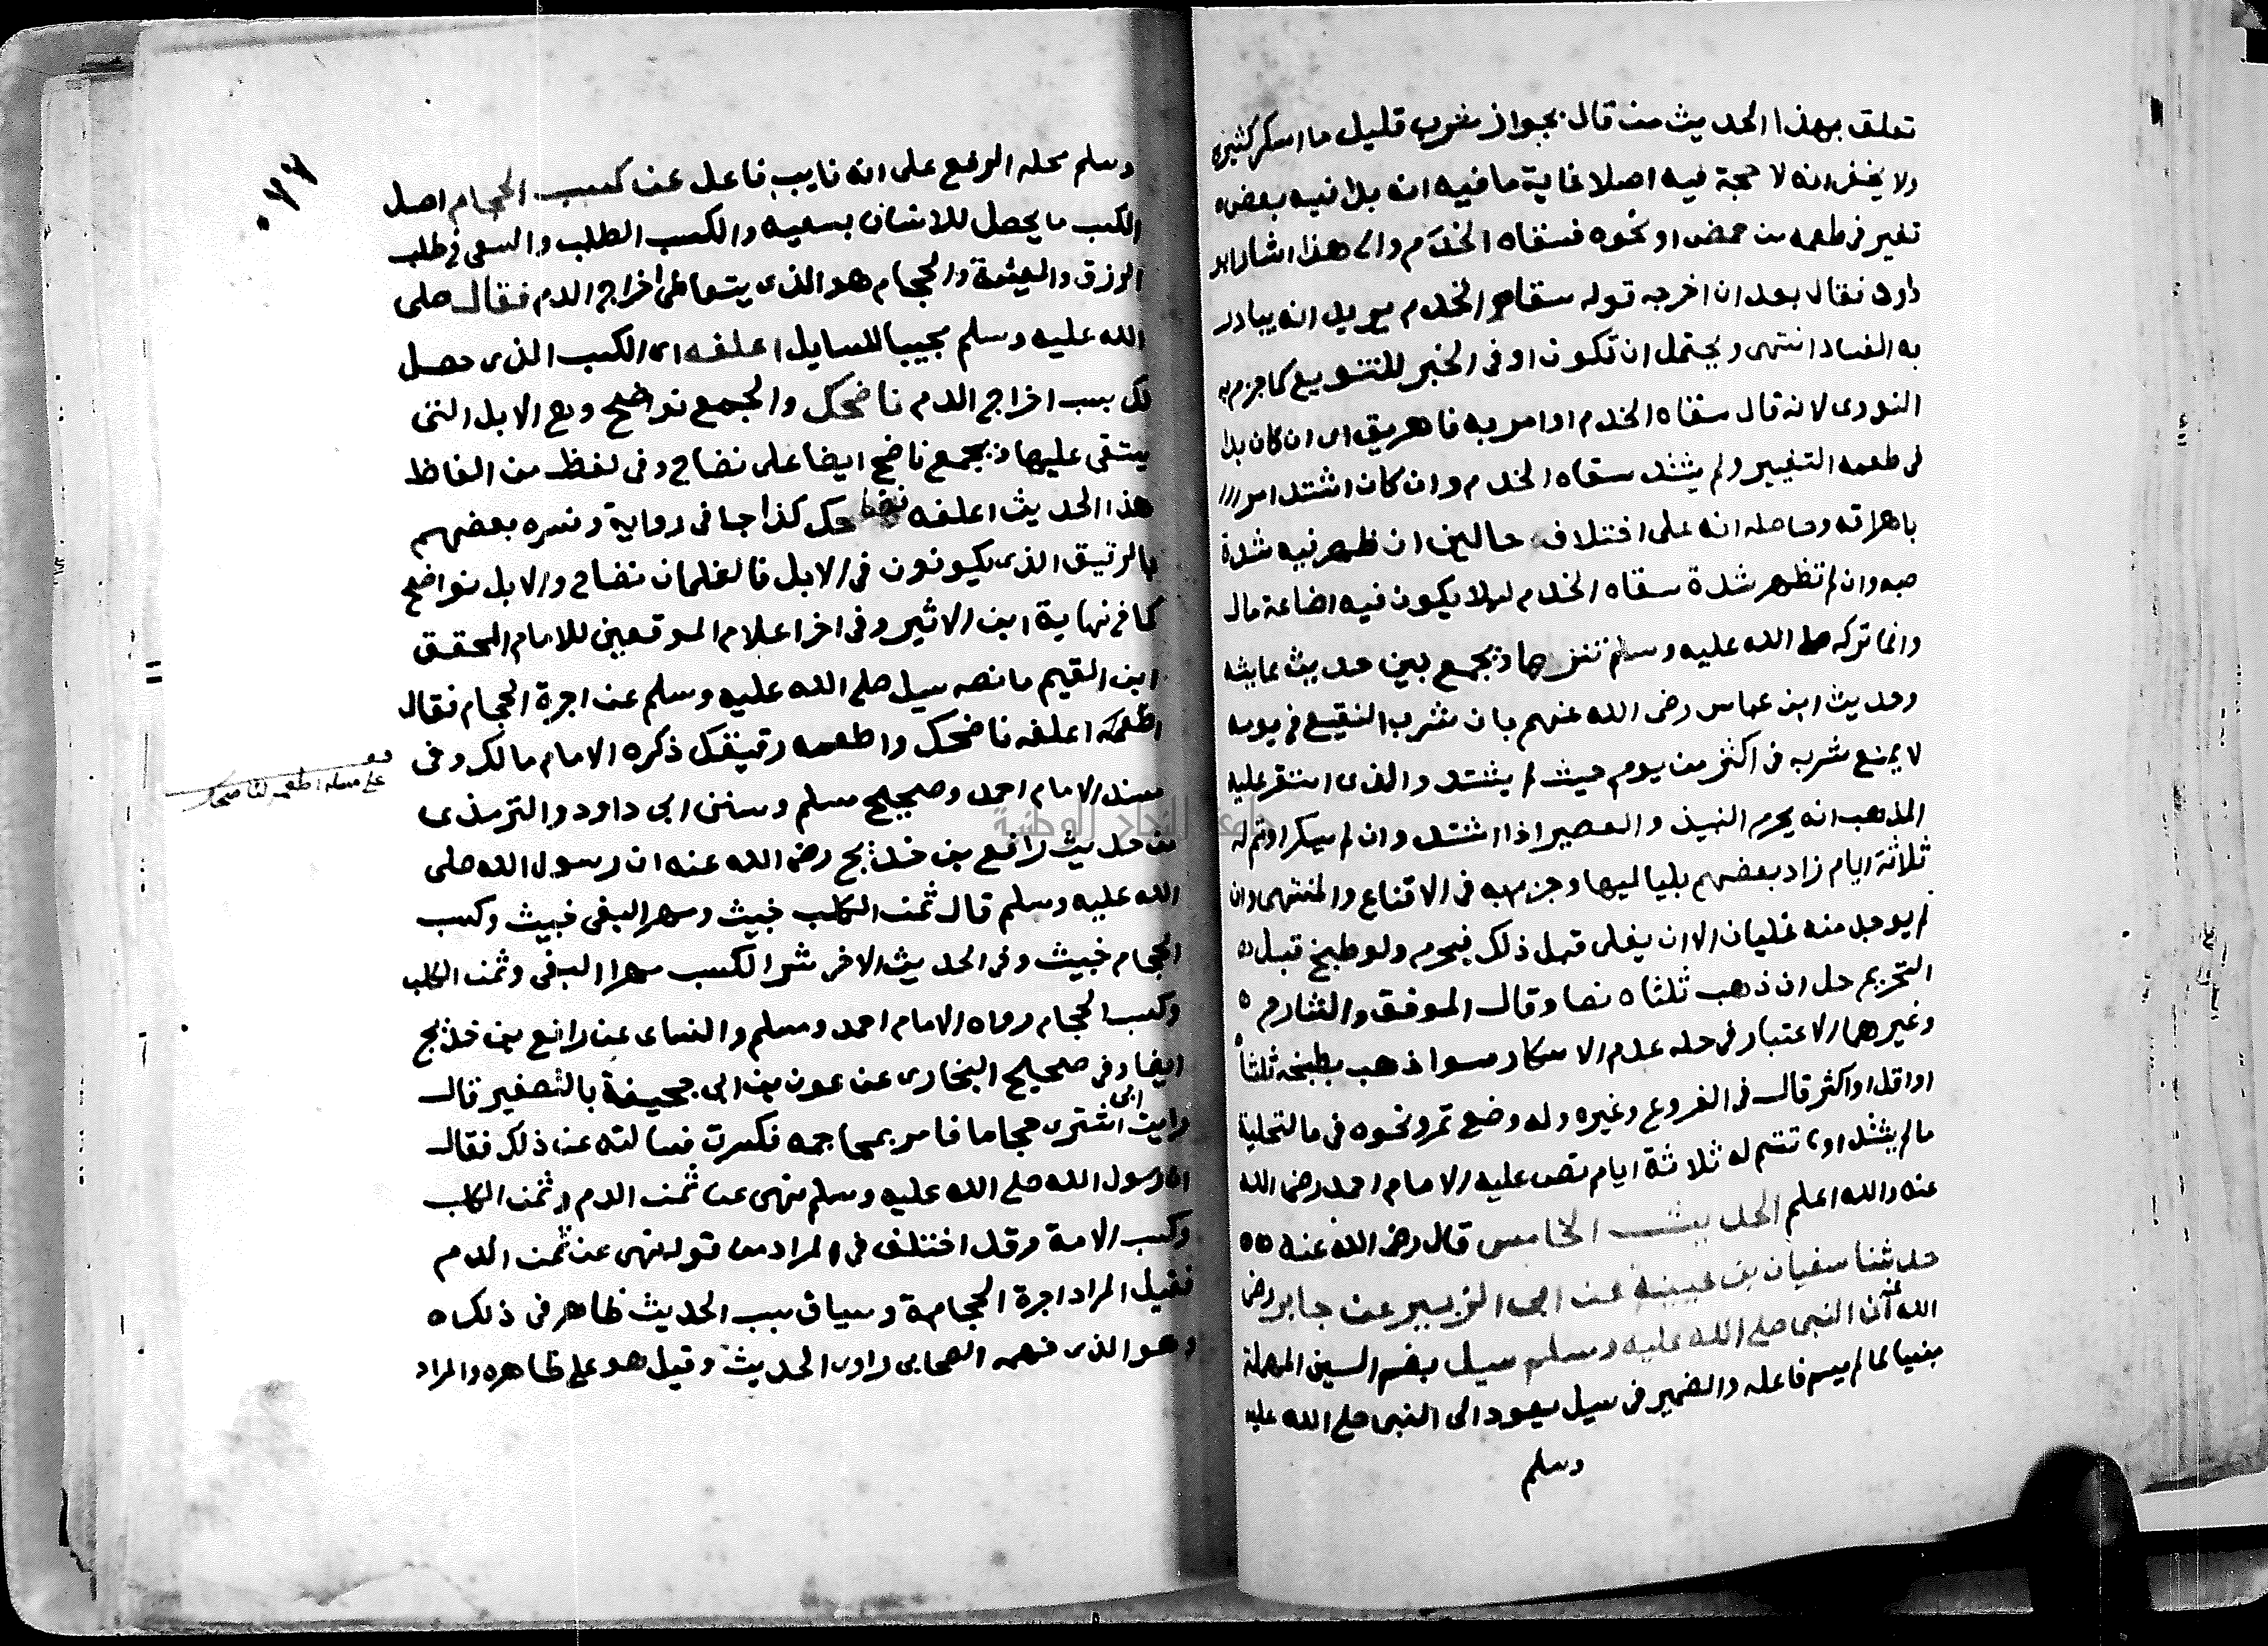 تعلق بهذا الحديث من قال بجواز شرب قليل ما اسكر كثيره
ولا يخفى انه لا حجة فيه اصلا غاية ما فيه انه بدا فيه بعض
تغير في طعمه من حمض او نحوه فسقاه الخدم والى هذا اشار ابو
داود فقال بعد ان اخرجه قوله سقاه الخدم يريد انه يبادر
به الفساد انتهى ويحتمل ان تكون او في الخبر للتنويع كما جزم به
النووي لانه قال سقاه الخدم او امر به فاهريق اي ان كان بدا
في طعمه التغيير ولم يشتد سقاه الخدم وان كان اشتد امر
باهراقه وحاصله انه على اختلاف حالين ان ظهر فيه شدة
صبه وان لم تظهر شدة سقاه الخدم ليلا يكون فيه اضاعة مال
وانما تركه صلى الله عليه وسلم تنزها ويجمع بين حديث عايشة
وحديث ابن عباس رضى الله عنهم بان شرب النقيع في يومه
لا يمنع شربه في اكثر من يوم حيث لم يشتد والذى استقر عليه
المذهب انه يحرم النبيذ والعصير اذا اشتد وان لم يسكر او تم له
ثلاثة ايام زاد بعضهم بلياليها وجزم به في الاقناع والمنتهى وان
لم يوجد منه غليان الا ان يغلى قبل ذلك فيحرم ولو طبخ قبل
التحريم حل ان ذهب ثلثاه نصا وقال الموفق والشارح
وغيرهما الاعتبار في حله عدم الاسكار سوا ذهب بطبخه ثلثاه
او اقل او اكثر قال في الفروع وغيره وله وضع تمر ونحوه في ما لتحلية
ما لم يشتد او تتم له ثلاثة ايام نص عليه الامام احمد رضى الله
عنه والله اعلم الحديث الخامس قال رضى الله عنه
حدثنا سفيان بن عيينة عن ابى الزبير عن جابر رضى
الله عنه ان النبى صلى الله عليه وسلم سيل بضم السين المهملة
مبنيا لما لم يسم فاعله والضمير في سيل يعود الى النبى صلى الله عليه
وسلم
٠٧٦
وسلم محله الرفع على انه نايب فاعل عن كسب الحجام اصل
الكسب ما يحصل للانسان بسعيه والكسب الطلب والسعى في طلب
الرزق والمعيشة والحجام هو الذى يتعاطى اخراج الدم فقال صلى
الله عليه وسلم مجيبا للسايل اعلفه اى الكسب الذى حصل
لك بسبب اخراج الدم ناضحك والجمع نواضح وهي الابل التى
يستقى عليها ويجمع ناضح ايضا على نضاح وفى لفظ من الفاظ
هذا الحديث اعلفه نضاحك كذا جا في رواية وفسره بعضهم
بالرقيق الذى يكونون في الابل فالغلمان نضاح والابل نواضح
كما في نهاية ابن الاثير وفى اخر اعلام الموقعين للامام المحقق
ابن القيم ما نصه سيل صلى الله عليه وسلم عن اجرة الحجام فقال
اعلفه ناضحك واطعمه رقيقك ذكره الامام مالك وفى
مسند الامام احمد وصحيح مسلم وسنن ابى داود والترمذى
من حديث رافع بن خديج رضى الله عنه ان رسول الله صلى
الله عليه وسلم قال ثمن الكلب خبيث ومهر البغى خبيث وكسب
الحجام خبيث وفى الحديث الاخر شر الكسب مهر البغى وثمن الكلب
وكسب الحجام رواه الامام احمد ومسلم والنساى عن رافع بن خديج
ايضا وفى صحيح البخارى عن عون بن ابى جحيفة بالتصغير قال
رايت ابى اشترى حجاما فامر بمحاجمه فكسرت فسالته عن ذلك فقال
ان رسول الله صلى الله عليه وسلم نهى عن ثمن الدم وثمن الكلب
وكسب الامة وقد اختلف في المراد من قوله نهى عن ثمن الدم
فقيل المراد اجرة الحجامة وسياق سبب الحديث ظاهر في ذلك
وهو الذى فهمه الصحابى راوى الحديث وقيل هو على ظاهره والمراد
جامعة النجاح الوطنية